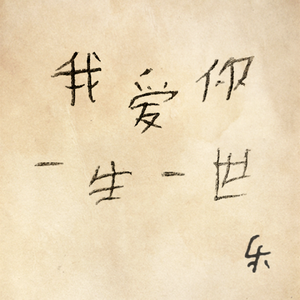 我爱你
一生一世
乐